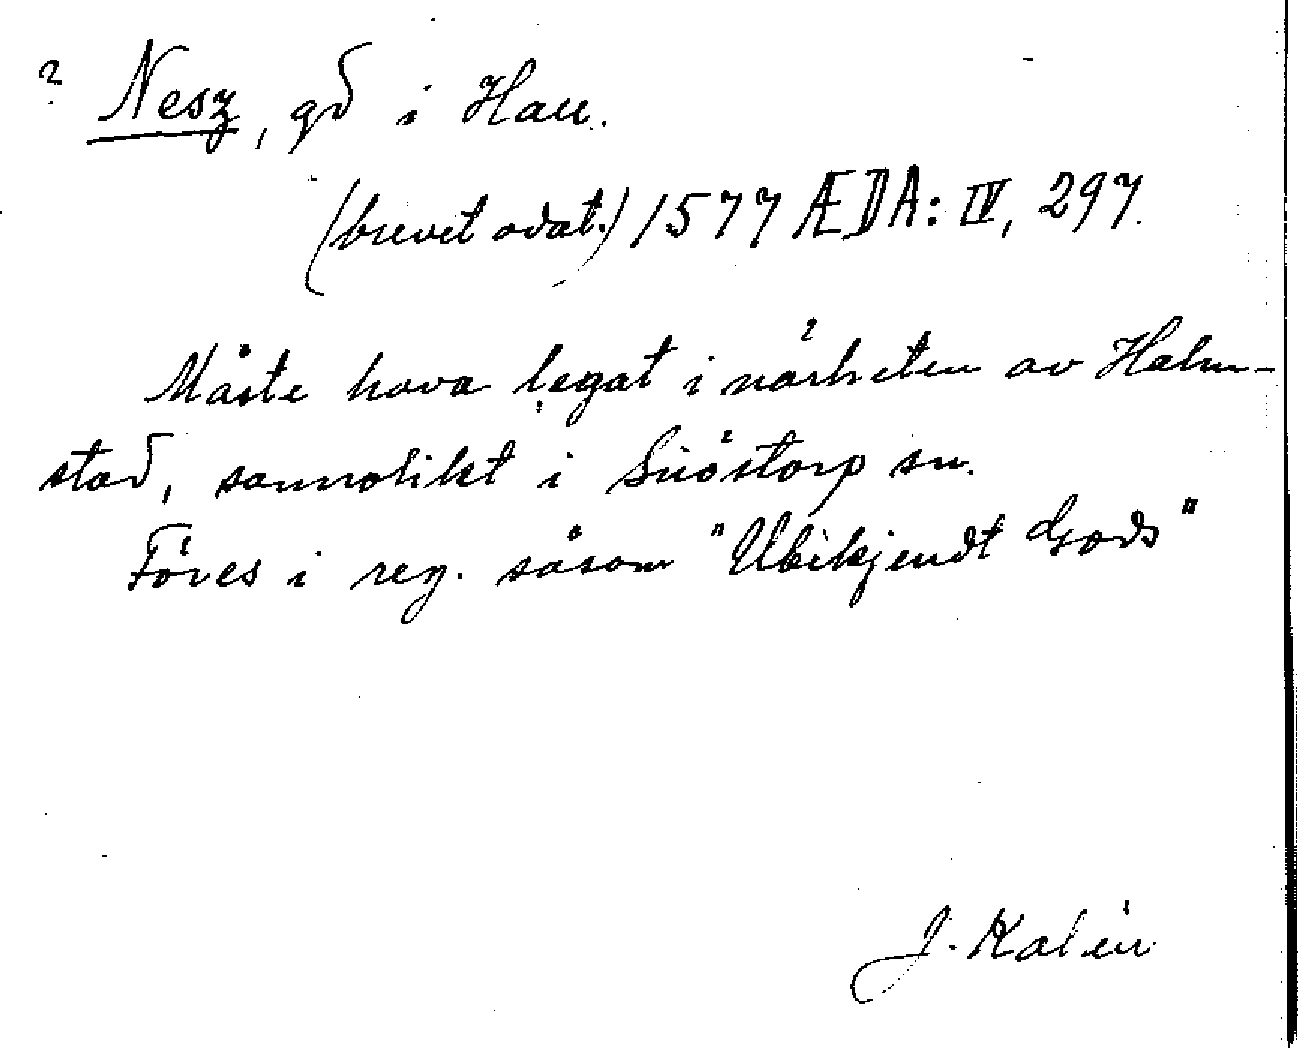 ? Nesz, gd i Hall.
(brevet odat.) 1577 ÆDA: IV, 297.
Måste hava legat i närheten av Halm-
stad, sannolikt i Snöstorp sn.
Föres i reg. såsom "Ubikjendt Gods"
J. Kalén